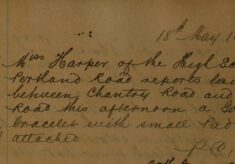 18th May 1
Miss Harper of the High Sc
Portland Road reports losi
between Chantry Road and
Road this afternoon a Go
bracelet with small Pad
attached